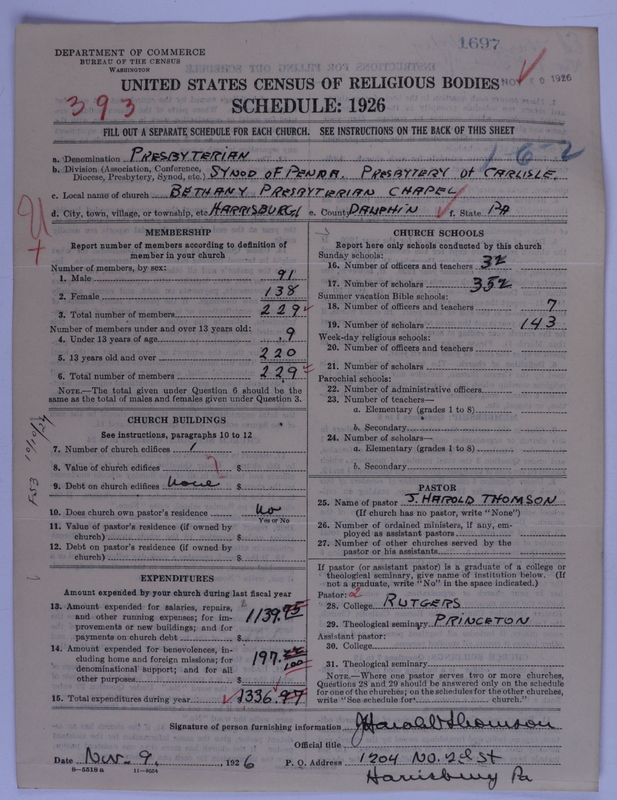 1697
DEPARTMENT OF COMMERCE
BUREAU OF THE CENSUS
WASHINGTON
UNITED STATES CENSUS OF RELIGIOUS BODIES
1926
393
SCHEDULE: 1926
FILL OUT A SEPARATE SCHEDULE FOR EACH CHURCH. SEE INSTRUCTIONS ON THE BACK OF THIS SHEET
1-6-2
a. Denomination PRESBYTERIAN
b. Division (Association, Conference, Diocese, Presbytery, Synod, etc.) SYNOD OF PENNA. PRESBYTERY OF CARLISLE
c. Local name of church BETHANY PRESBYTERIAN CHAPEL
d. City, town, village, or township, etc. HARRISBURG e. County DAUPHIN f. State PA
MEMBERSHIP
Report number of members according to definition of
member in your church
Number of members, by sex:
1. Male 91
2. Female 138
3. Total number of members 229
Number of members under and over 13 years old:
4. Under 13 years of age 9
5. 13 years old and over 220
6. Total number of members 229
NOTE.—The total given under Question 6 should be
same as the total of males and females given under Question 3.
CHURCH BUILDINGS
See instructions, paragraphs 10 to 12
7. Number of church edifices 1
8. Value of church edifices $
9. Debt on church edifices none $
10. Does church own pastor's residence no
Yes or No
11. Value of pastor's residence (if owned by
church) $
12. Debt on pastor's residence (if owned by
church) $
EXPENDITURES
Amount expended by your church during last fiscal year
13. Amount expended for salaries, repairs,
and other running expenses; for im-
provements or new buildings; and for
payments on church debt $ 1139.95
14. Amount expended for benevolences, in-
cluding home and foreign missions; for
denominational support; and for all
other purposes $ 197.
15. Total expenditures during year $ 1336.97
CHURCH SCHOOLS
Report here only schools conducted by this church
Sunday schools:
16. Number of officers and teachers 32
17. Number of scholars 352
Summer vacation Bible schools:
18. Number of officers and teachers 7
19. Number of scholars 143
Week-day religious schools:
20. Number of officers and teachers
21. Number of scholars
Parochial schools:
22. Number of administrative officers
23. Number of teachers—
a. Elementary (grades 1 to 8)
b. Secondary
24. Number of scholars—
a. Elementary (grades 1 to 8)
b. Secondary
PASTOR
25. Name of pastor J. HAROLD THOMSON
(If church has no pastor, write "None")
26. Number of ordained ministers, if any, em-
ployed as assistant pastors
27. Number of other churches served by the
pastor or his assistants
If pastor (or assistant pastor) is a graduate of a college or
theological seminary, give name of institution below. (If
not a graduate, write "No" in the space indicated.)
Pastor: 2
28. College RUTGERS
29. Theological seminary PRINCETON
Assistant pastor:
30. College
31. Theological seminary
NOTE.—Where one pastor serves two or more churches,
Questions 28 and 29 should be answered only on the schedule
for one of the churches; on the schedules for the other churches,
write "See schedule for church."
Signature of person furnishing information J Harold Thomson
Official title
Date Nov. 9, 1926 P. O. Address 1204 NO. 2d St
8-5518 a 11-9054 Harrisburg Pa